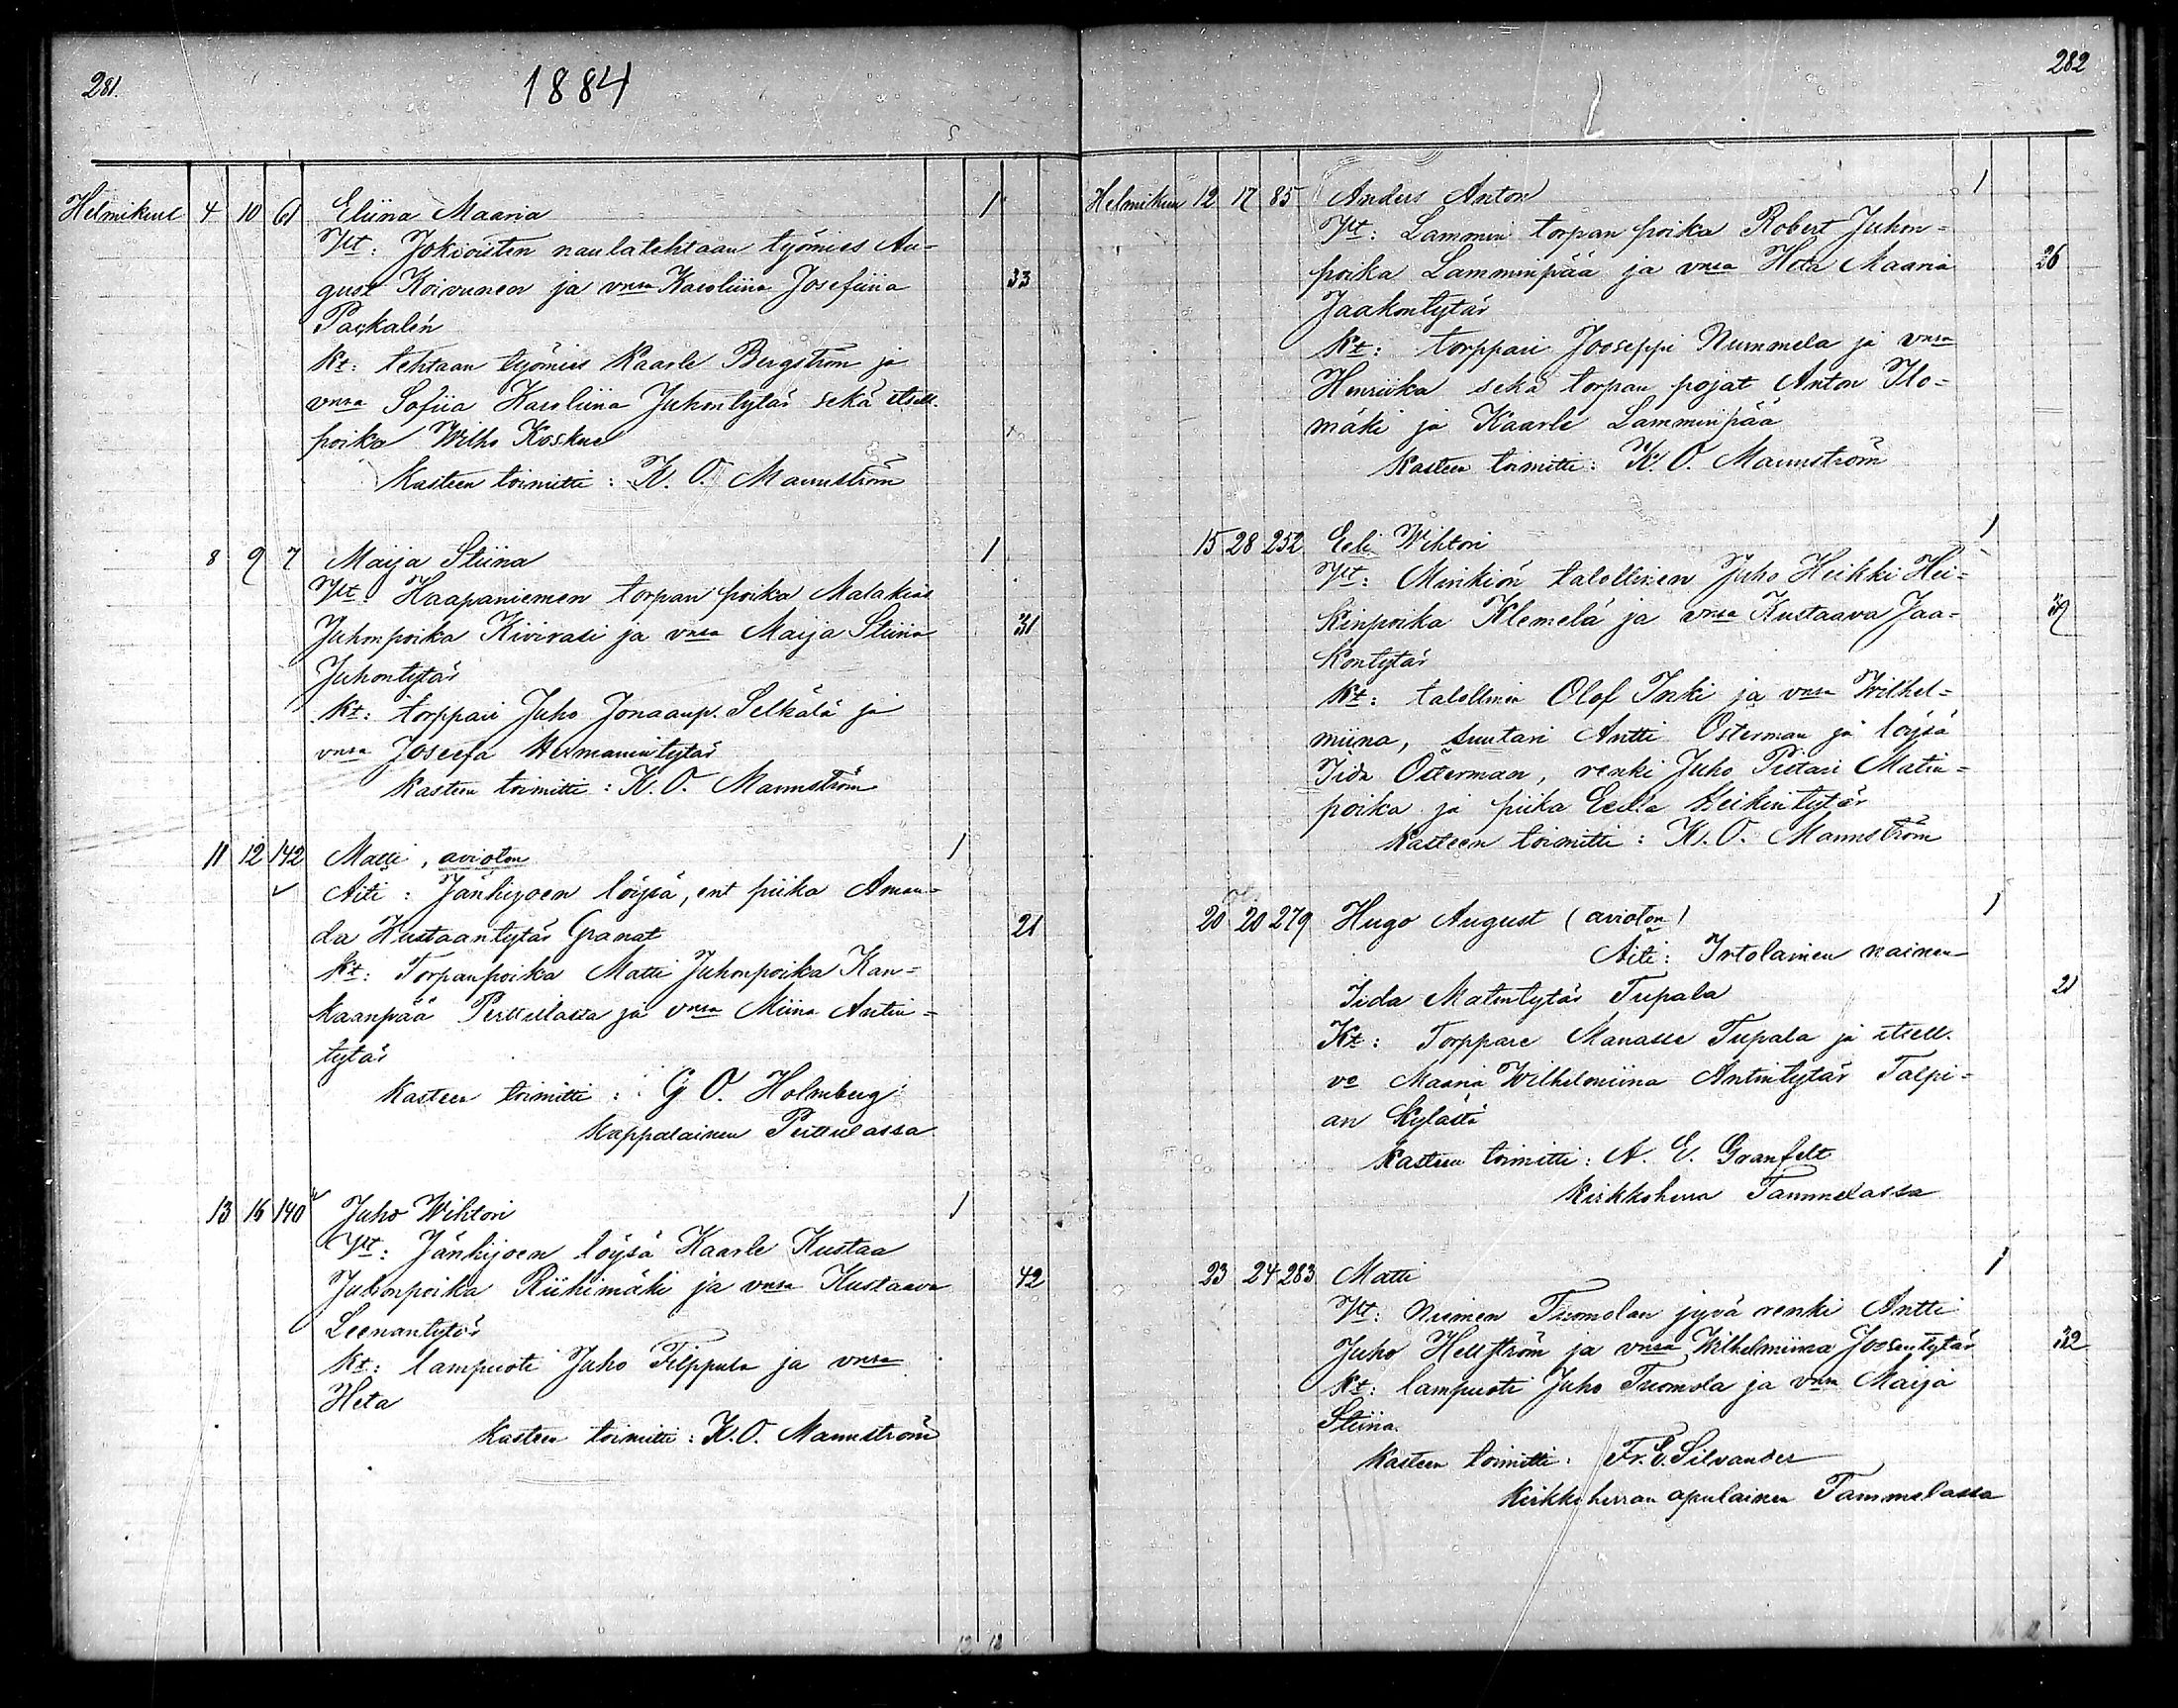 281.
1884
Helmikuu 4 10 61 Eliina Maaria 1
Vt: Jokioisten naulatehtaan työmies Au-
gust Koivunen ja vmsa Karoliina Josefiina 33
Paçkalén
Kt: tehtaan työmies Kaarle Bergström ja
vmsa Sofiia Karoliina Juhontytär sekä itsell.
poika Wilho Koskue
Kasteen toimitti: K. O. Mannström
8 9 7 Maija Stiina 1
Vt: Haapaniemen torpan poika Malakias
Juhonpoika Kivivasi ja vmsa Maija Stiina 31
Juhontytär
Kt: torppari Juho Jonaanp. Selkälä ja
vmsa Josefa Hermannintytär
Kasteen toimitti: K. O. Mannström
11 12 142 Matti, avioton 1
Äiti: Jänhijoen löysä, ent piika Aman-
da Kustaantytär Granat 21
Kt: Torpanpoika Matti Juhonpoika Kan-
kaanpää Perttulasta ja vmsa Miina Antin-
tytär
Kasteen toimitti: G O. Holmberg
Kappalainen Perttulassa
13 16 140 Juho Wihtori 1
Vt: Jänhijoen löysä Kaarle Kustaa
Juhonpoika Riihimäki ja vmsa Kustaava 42
Leenantytär
Kt: lampuoti Juho Filppula ja vmsa
Heta
Kasteen toimitti: K. O. Mannström
282
Helmikuu 12 17 85 Anders Anton 1
Vt: Lammin torpan poika Robert Juhon-
poika Lamminpää ja vmsa Heta Maaria 26
Jaakontytär
Kt: torppari Jooseppi Nummela ja vmsa
Henriika sekä torpan pojat Anton Ilo-
mäki ja Kaarle Lamminpää
Kasteen toimitti: K. O. Mannström
15 28 252 Eeli Wihtori 1
Vt: Minkiön talollinen Juho Heikki Hei-
kinpoika Klemelä ja vmsa Kustaava Jaa-
kontytär
Kt: talollinen Olof Inki ja vmsa Wilhel-
miina, suutari Antti Österman ja löysä
Iida Österman, renki Juho Pietari Matin-
poika ja piika Eedla Heikintytär
Kasteen toimitti: K. O. Mannström
20 20 279 Hugo August (avioton) 1
Äiti: Irtolainen nainen
Iida Matintytär Tupala 21
Kt: Torppare Manasse Tupala ja itsell.
vo Maaria Wilhelmiina Antintytär Talpi-
an kylästä
Kasteen toimitti: A. E. Granfelt
Kirkkoherra Tammelassa
23 24 283 Matti 1
Vt: Niemen Tuomolan jyvä renki Antti
Juho Hellström ja vmsa Wilhelmiina Joosentytär 32
Kt: lampuoti Juho Tuomola ja vmsa Maija
Stiina.
Kasteen toimitti: Fr. E. Silvander
Kirkkoherran apulainen Tammelassa